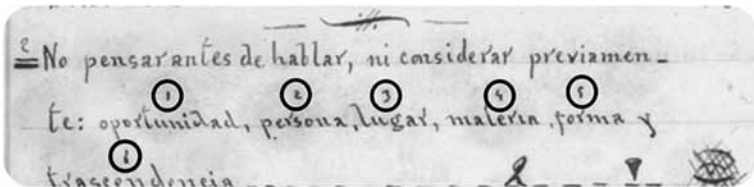 2 = No pensar antes de hablar, ni considerar previamen-
1 2 3 4 5
te: oportunidad, persona, lugar, materia, forma y
6
trascendencia